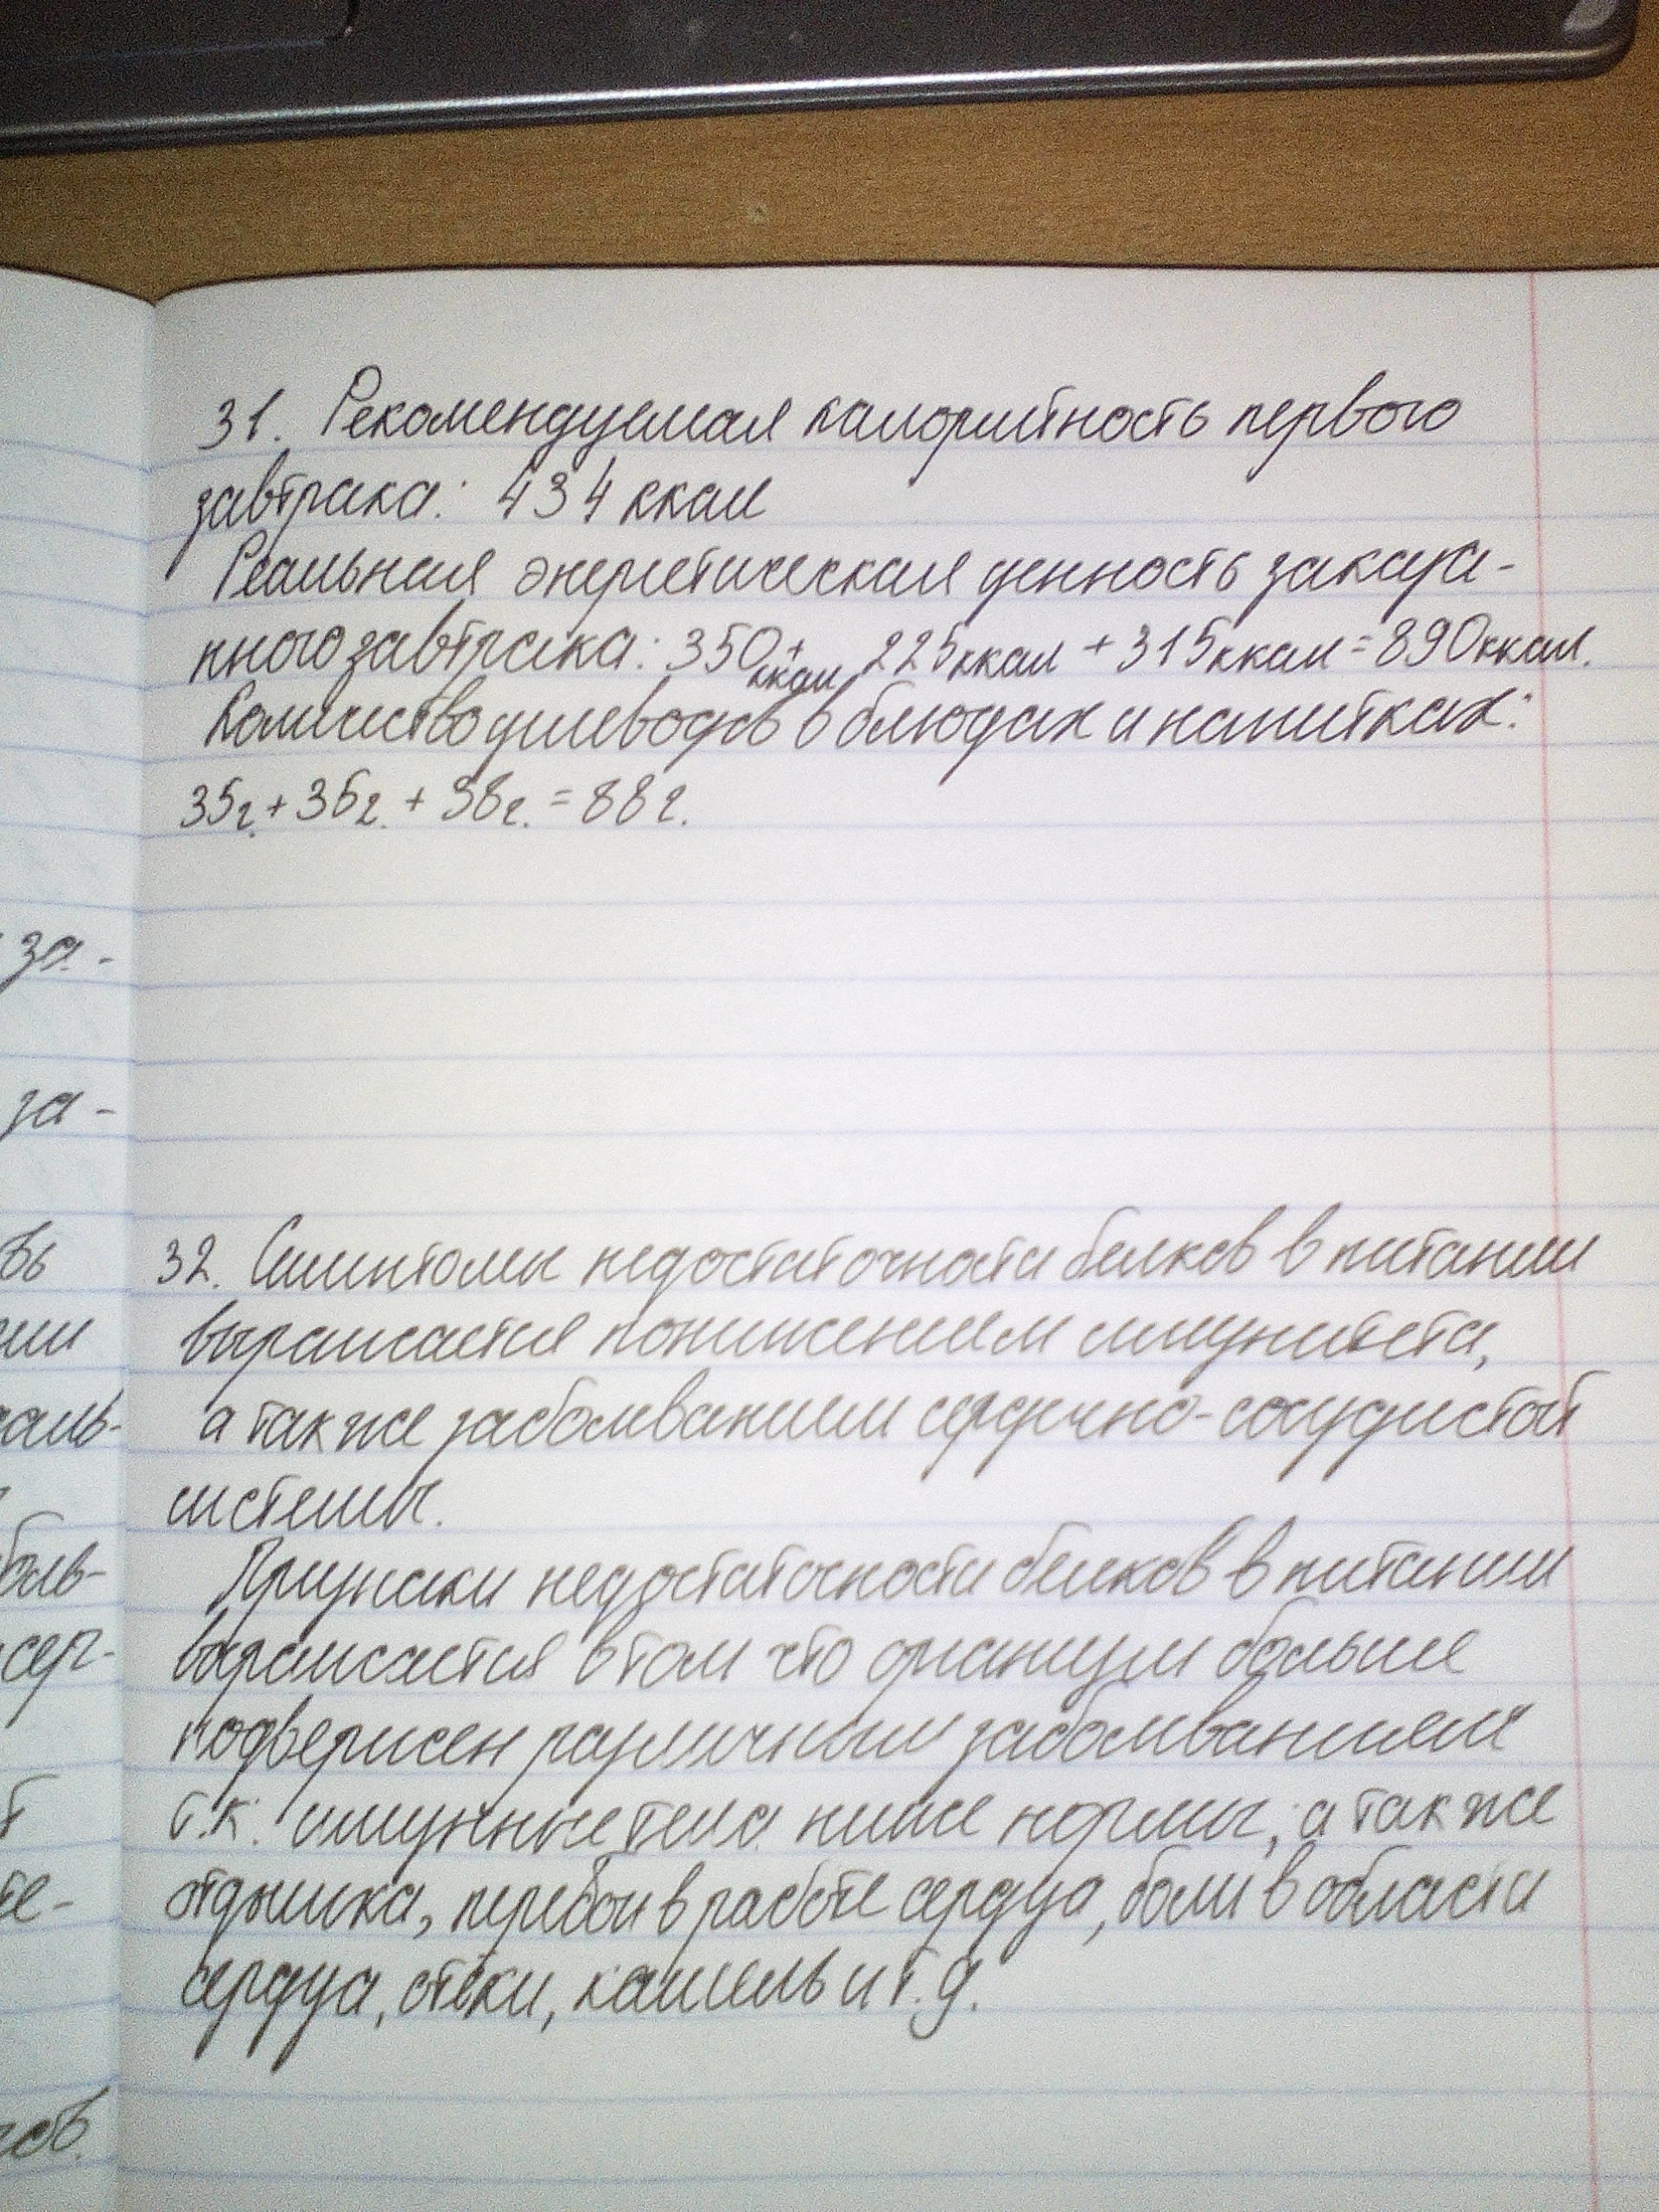 31. Рекомендуемая калорийность первого
завтрака: 434 ккал
Реальная энергетическая ценность заказа-
нного завтрака: 350 ккал + 225 ккал + 315 ккал = 890 ккал.
Количество углеводов в блюдах и напитках:
35г. + 35г. + 38г. = 88г.
за-
за-
32. Симптомы недостаточности белков в питании
выражается понижением имунитета,
а также заболеванием сердечно-сосудистой
системы.
Признаки недостаточности белков в питании
выражается в том что организм больше
подвержен различным заболеванием
т.к. имунные тела ниже нормы, а также
отдышка, перебои в работе сердца, боли в области
сердца, отёки, кашель и т.д.